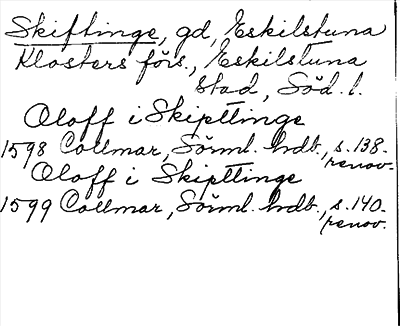 Skiftinge, gd, Eskilstuna
Klosters förs., Eskilstuna
stad, Söd. l.
Oloff i Skipttinge
1598 Collmar, Sörml. hdb., s. 138.
renov.
Oloff i Skipttinge
1599 Collmar, Sörml. hdb., s. 140.
renov.